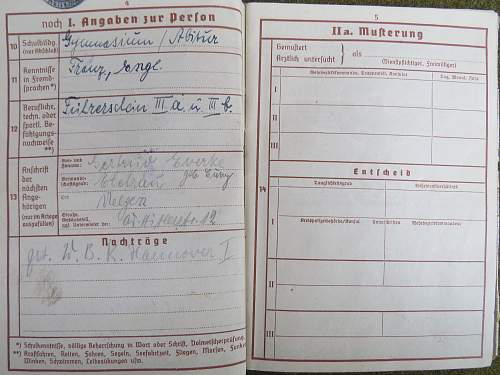 4
noch I. Angaben zur Person
10 Schulbildg. (nur Abschluß)
Gymnasium / Abitur
11 Kenntnisse in Fremdsprachen *)
Franz., Engl.
12 Berufliche, techn. oder sportl. Befähigungsnachweise **)
Führerschein III a. u III b.
13 Anschrift der nächsten Angehörigen (nur im Kriege auszufüllen)
Vor- und Zuname:
Gertrud
geb.
Verwandtschaftsgrad:
Ehefrau
Wohnort:
Straße,
12
Nachträge
W. B. K. Hannover I
*) Sprachkenntnisse, völlige Beherrschung in Wort oder Schrift, Dolmetscherprüfung.
**) Kraftfahren, Reiten, Fahren, Segeln, Seefahrtzeit, Fliegen, Morsen, Funken,
Winken, Schwimmen, Leibesübungen usw.
5
IIa. Musterung
Gemustert
Ärztlich untersucht
als
(Dienstpflichtiger, Freiwilliger)
Wehrbezirkskommando, Truppenteil, Annahmestelle
Tag, Monat, Jahr
I
II
III
Entscheid
14
Tauglichkeitsgrad
Wehrdienstverhältnis
I
Kreispolizeibehörde/Konsul
Unterschriften
Wehrbezirkskommandeur
II
III